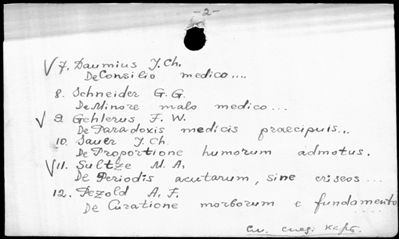 - 2 -
√ 7. Daumius J. Ch.
De Consilio medico....
8. Schneider G. G.
De Minore malo medico...
√ 9. Gehlerus F. W.
De Paradoxis medicis praecipuis...
10. Sauer J. Ch
De Proportione humorum admotus.
√ 11. Sultze M. A.
De Periodis acutarum, sine criseos...
12. Pezold A. F.
De Curatione morborum e fundamento
См. след. карт.